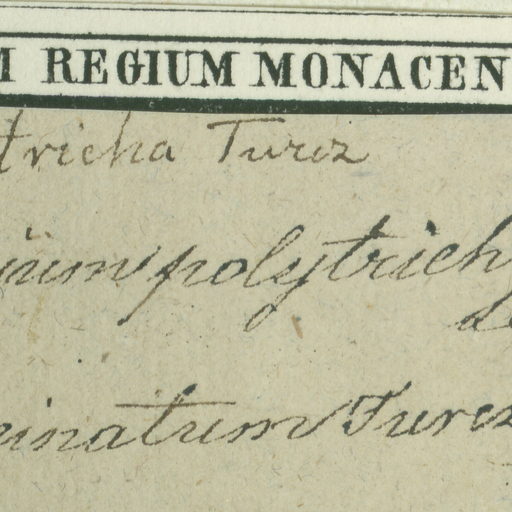 M REGIUM MONACEN
tricha Turcz
ium polytrich
inatum Turcz